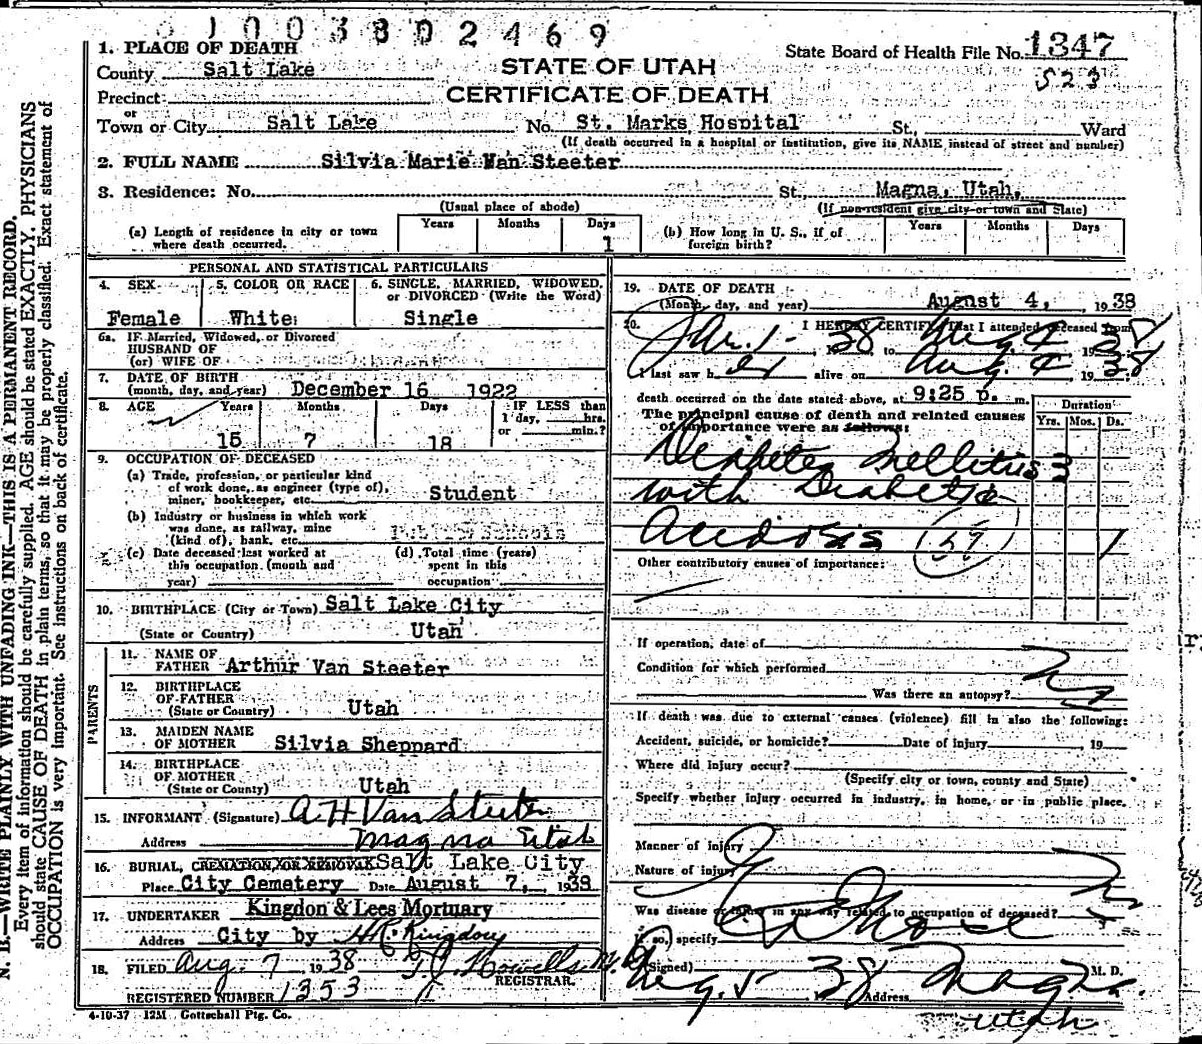 1003802469
1. PLACE OF DEATH
State Board of Health File No. 1347
County Salt Lake
STATE OF UTAH
523
Precinct
CERTIFICATE OF DEATH
or
Town or City Salt Lake No. St. Marks Hospital St., Ward
(If death occurred in a hospital or institution, give its NAME instead of street and number)
2. FULL NAME Silvia Marie Van Steeter
3. Residence: No. St. Magna, Utah,
(Usual place of abode) (If non-resident give city or town and State)
(a) Length of residence in city or town where death occurred. Years Months Days 1
(b) How long in U. S., if of foreign birth? Years Months Days
PERSONAL AND STATISTICAL PARTICULARS
4. SEX 5. COLOR OR RACE 6. SINGLE, MARRIED, WIDOWED,
or DIVORCED (Write the Word)
Female White Single
6a. IF Married, Widowed, or Divorced
HUSBAND OF
(or) WIFE OF
7. DATE OF BIRTH
(month, day, and year) December 16 1922
8. AGE Years Months Days IF LESS than
1 day, hrs.
or min.?
15 7 18
9. OCCUPATION OF DECEASED
(a) Trade, profession, or particular kind
of work done, as engineer (type of),
miner, bookkeeper, etc. Student
(b) Industry or business in which work
was done, as railway, mine
(kind of), bank, etc. Public Schools
(c) Date deceased last worked at
this occupation (month and
year)
(d) Total time (years)
spent in this
occupation
10. BIRTHPLACE (City or Town) Salt Lake City
(State or Country) Utah
PARENTS
11. NAME OF
FATHER Arthur Van Steeter
12. BIRTHPLACE
OF FATHER
(State or Country) Utah
13. MAIDEN NAME
OF MOTHER Silvia Sheppard
14. BIRTHPLACE
OF MOTHER
(State or Country) Utah
15. INFORMANT (Signature) A. H. Van Steeter
Address Magna Utah
16. BURIAL, CREMATION, OR REMOVAL Salt Lake City
Place City Cemetery Date August 7, 1938
17. UNDERTAKER Kingdon & Lees Mortuary
Address City by
18. FILED Aug. 7 1938 T. J. Howells M.D.
REGISTRAR.
REGISTERED NUMBER 1353
4-10-37 12M Gottschall Ptg. Co.
19. DATE OF DEATH
(Month, day, and year) August 4, 1938
20. I HEREBY CERTIFY That I attended deceased from
Jan. 1 - 1938 to Aug 4 1938
I last saw h er alive on Aug. 4 1938
death occurred on the date stated above, at 9:25 p. m.
The principal cause of death and related causes
of importance were as follows:
Duration
Yrs. Mos. Ds.
Diabetes Mellitus 3
with Diabetic
Acidosis (59) 1
Other contributory causes of importance:
If operation, date of
Condition for which performed
Was there an autopsy? No
If death was due to external causes (violence) fill in also the following:
Accident, suicide, or homicide? Date of injury 19
Where did injury occur?
(Specify city or town, county and State)
Specify whether injury occurred in industry, in home, or in public place.
Manner of injury
Nature of injury
Was disease or injury in any way related to occupation of deceased? No
If so, specify
(Signed) M. D.
Aug. 5 38 Address Magna
Utah
N. B.—WRITE PLAINLY WITH UNFADING INK—THIS IS A PERMANENT RECORD.
Every item of information should be carefully supplied. AGE should be stated EXACTLY. PHYSICIANS
should state CAUSE OF DEATH in plain terms, so that it may be properly classified. Exact statement of
OCCUPATION is very important. See instructions on back of certificate.